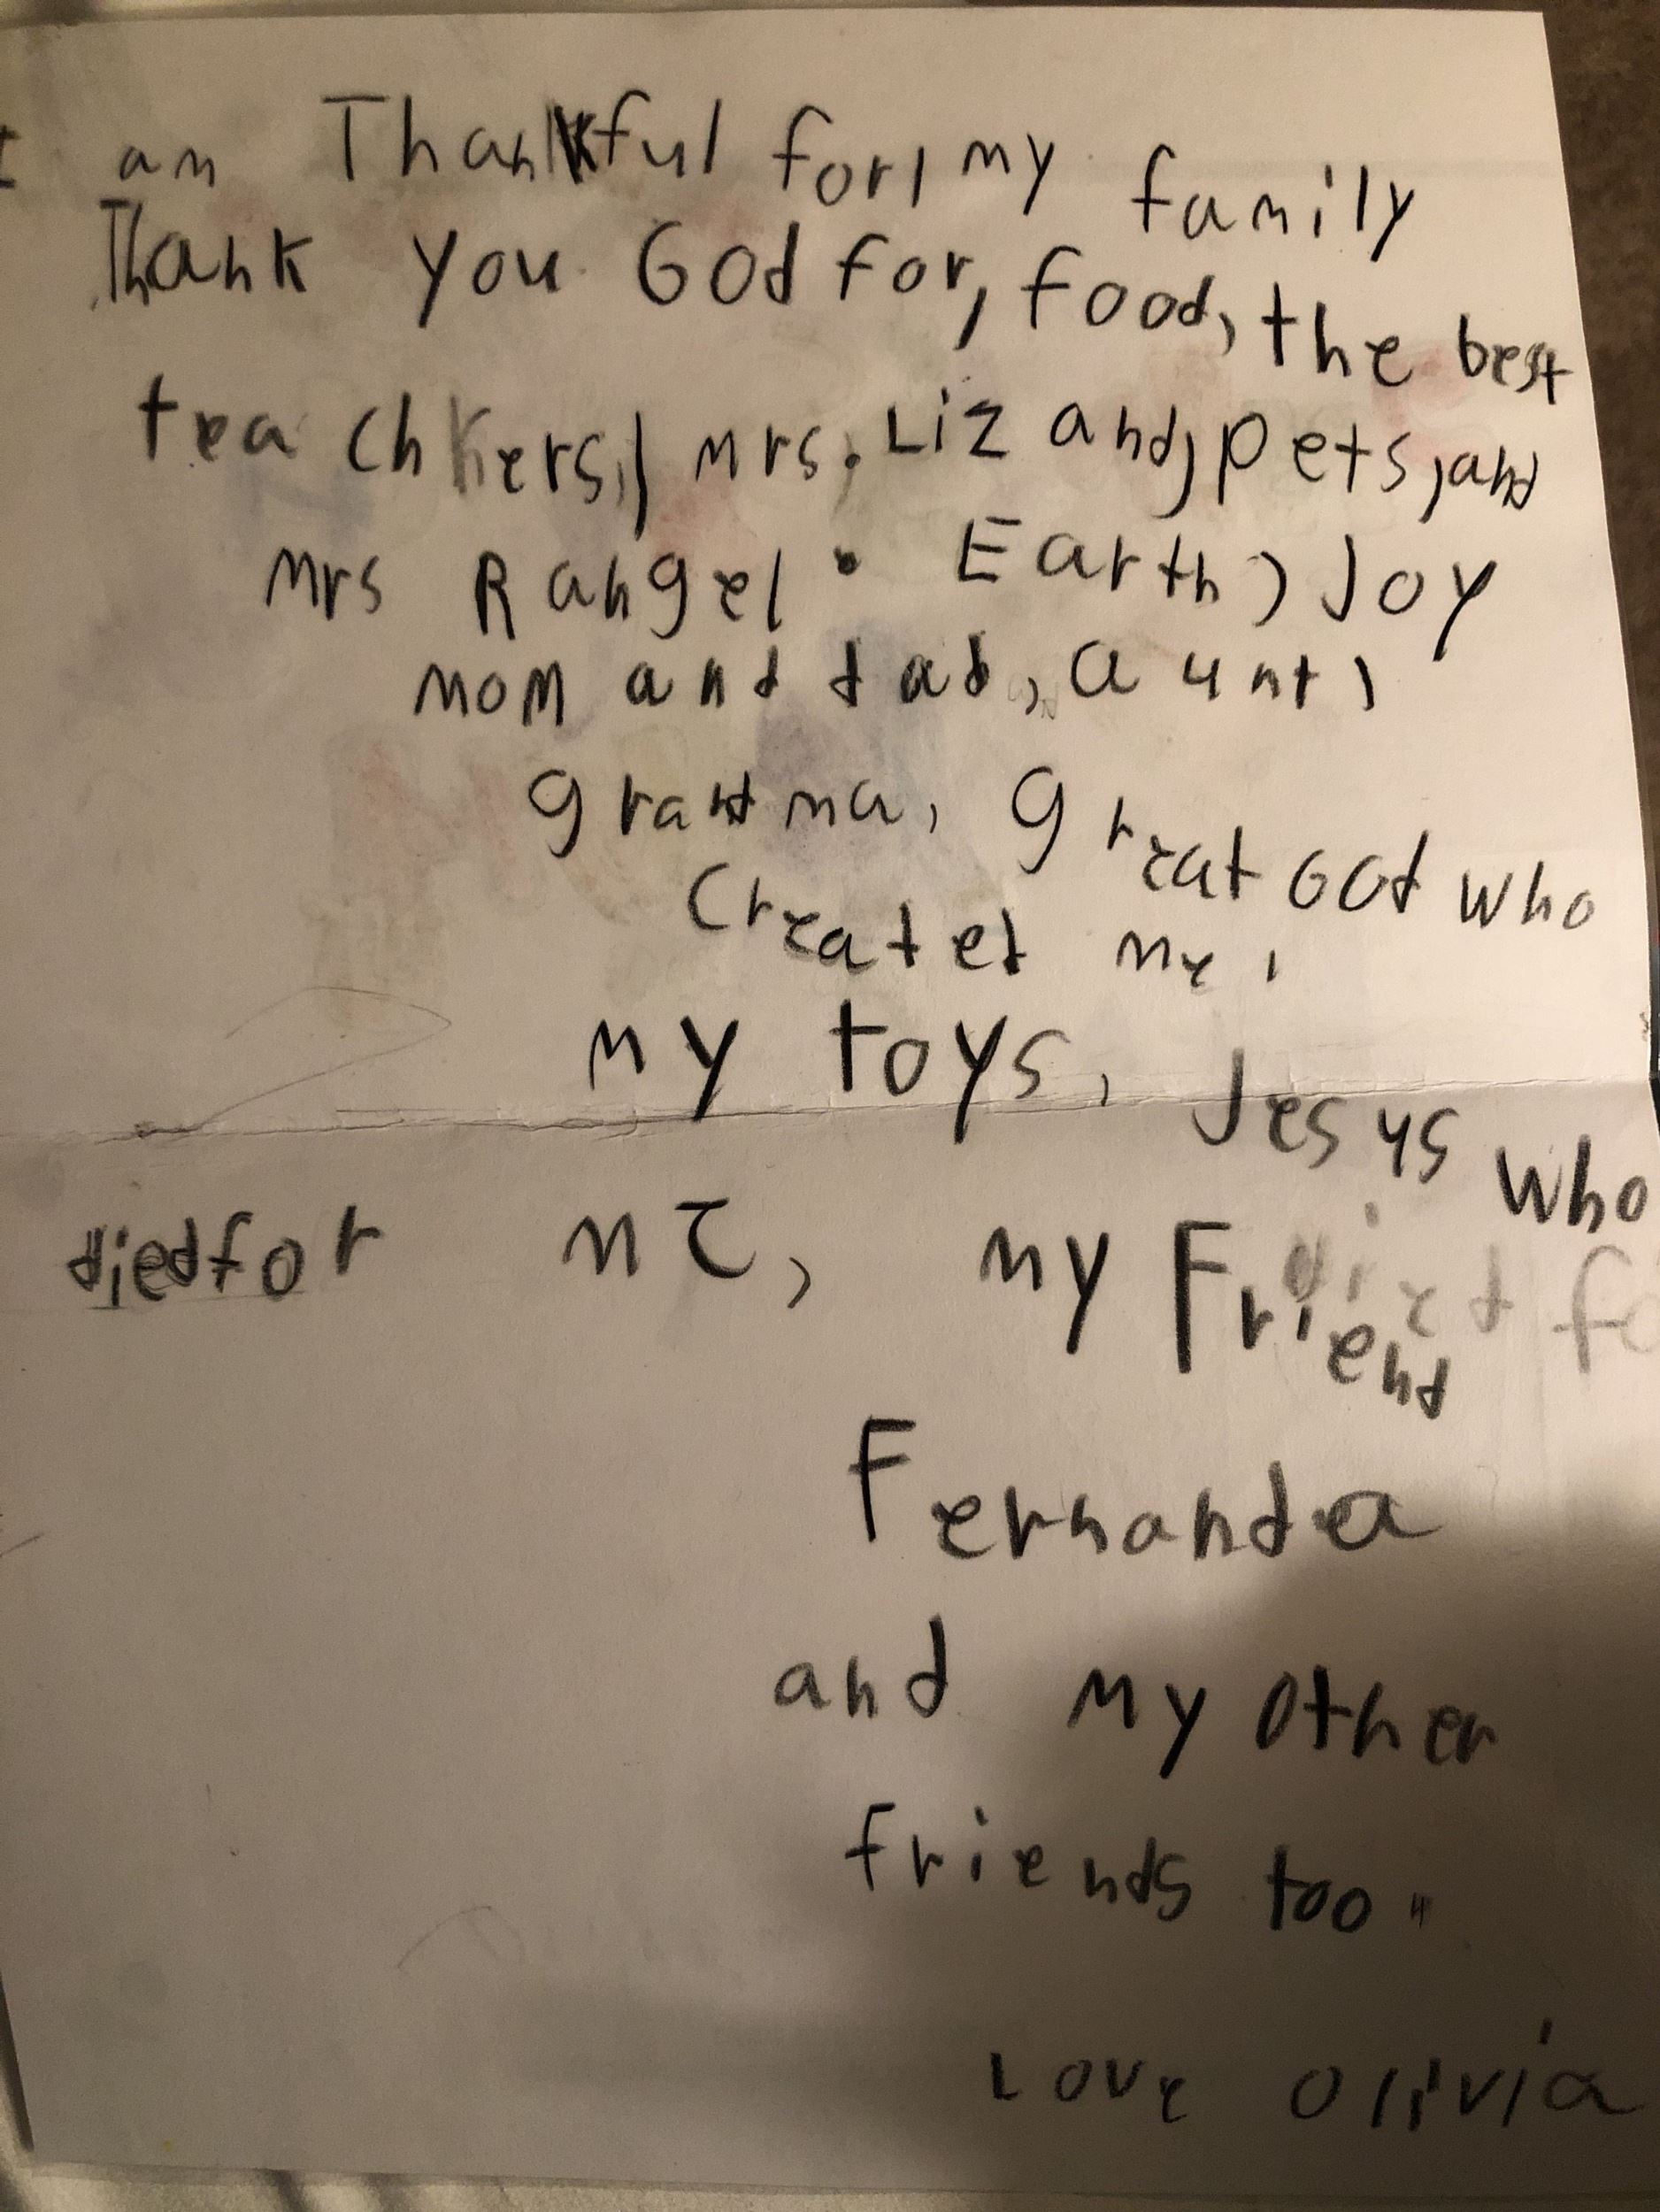 I am Thankful for, my family
Thank you God for, food, the best
teachers, mrs. Liz and, pets, and
Mrs Rangel. Earth, Joy
Mom and dad, aunt,
grandma, great God who
created me,
my toys, Jesys who
died for me, my Friend
Fernanda
and my other
friends too.
Love Olivia